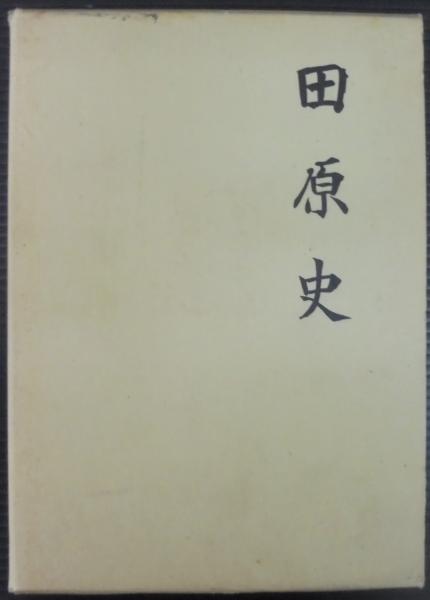 田原史